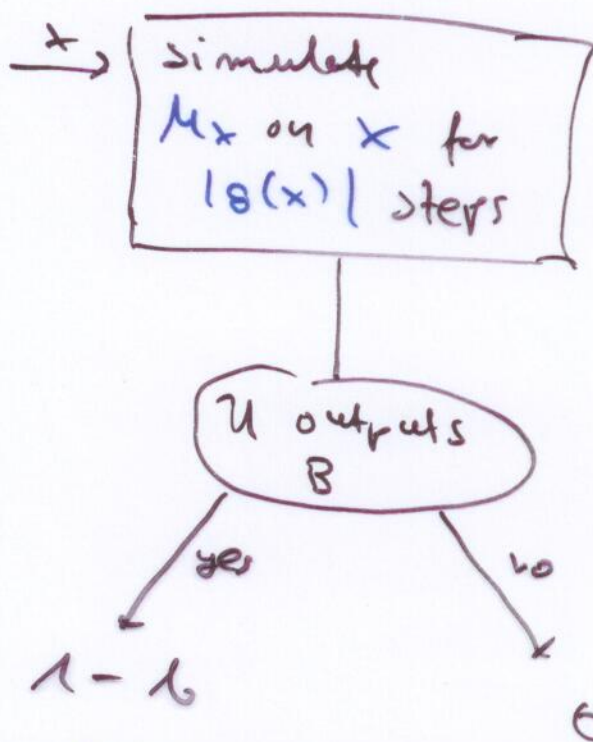 x
simulate
Mx on x for
|g(x)| steps
U outputs
B
yes
no
1 - b
0